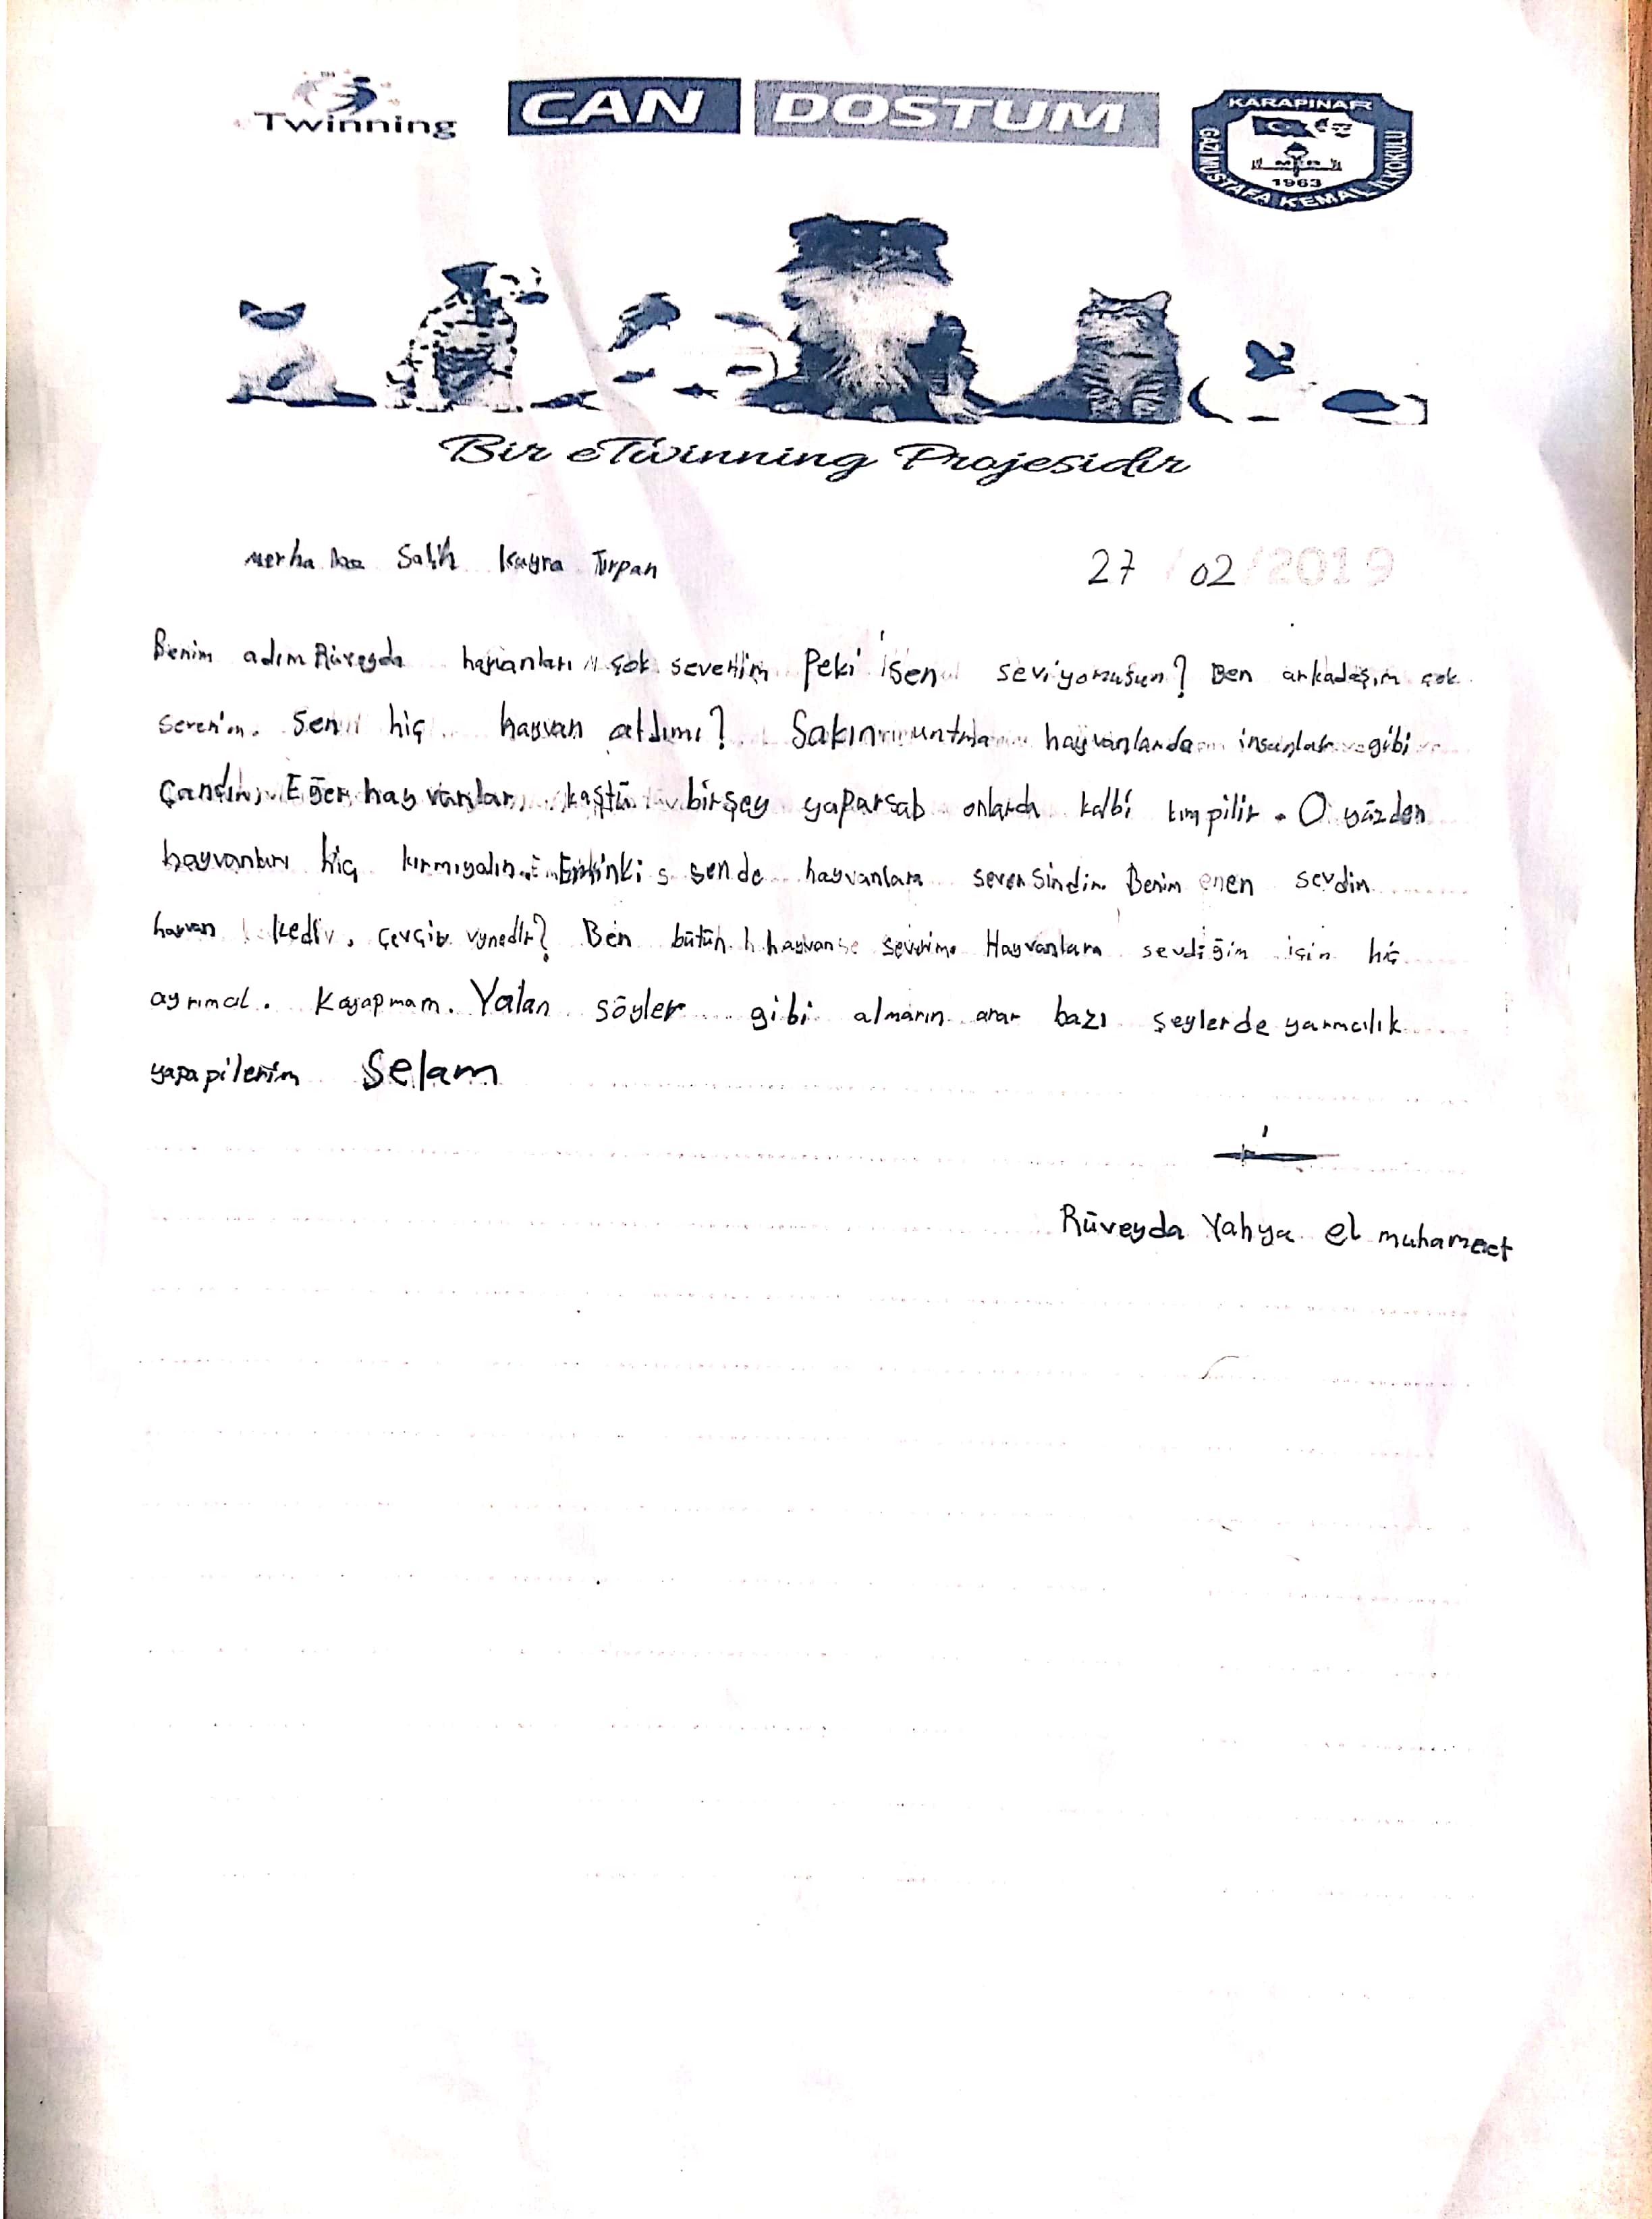 Twinning CAN DOSTUM
KARAPINAR
GAZİ MUSTAFA KEMAL İLKOKULU
1963
Bir eTwinning Projesidir
Merhaba Salih Kayra Turpan 27 / 02 / 2019
Benim adım Rüveyda hayvanları çok severim Peki sen seviyomusun? Ben arkadaşım çok
severim. Sen hiç hayvan aldımı? Sakın untma hayvanlarda insanlar gibi
Candır, Eğer hayvanlar kaştü birşey yaparsab onlarda kalbi kımpilir. O yüzden
hayvanları hiç kırmıyalın. Eminki sende hayvanlara seversindir. Benim enen sevdin
hayvan kedi. Ben bütün hayvan severim. Hayvanlara sevdiğim için hiç
ayrımcıl. Kayapmam. Yalan söyler gibi almarın arar bazı şeylerde yarmcılık
yapapilerim Selam
Rüveyda Yahya el muhamet